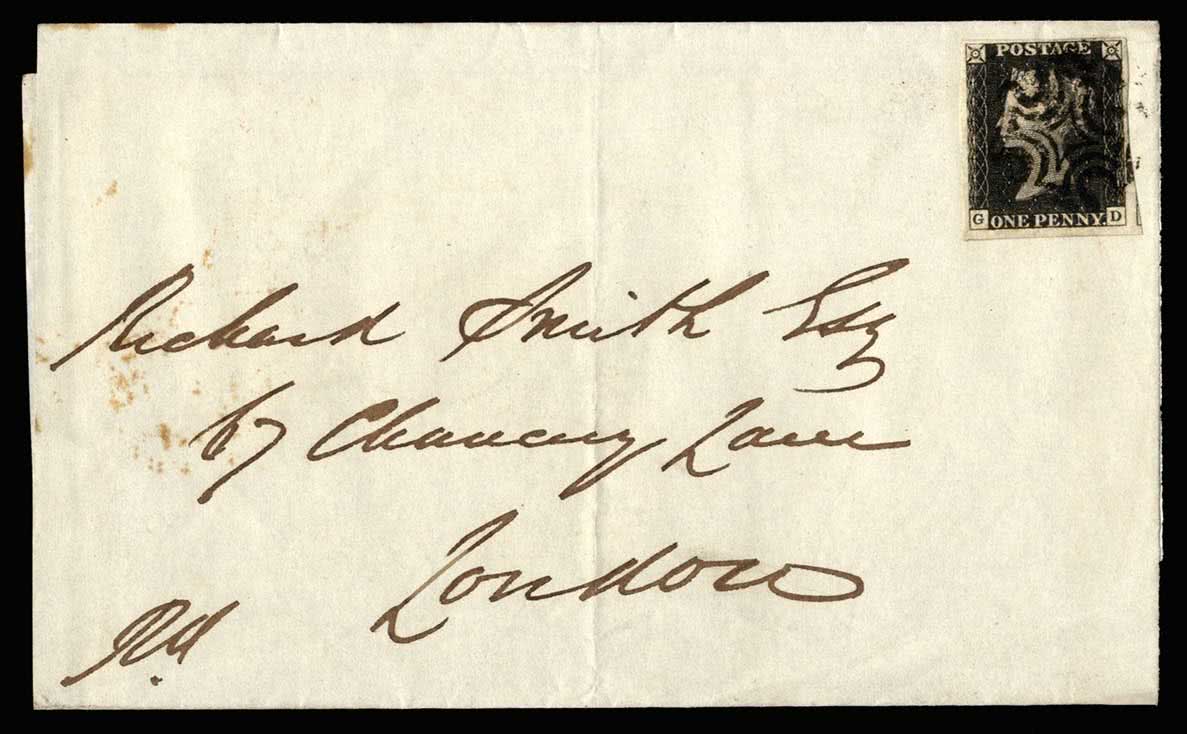 POSTAGE
G ONE PENNY. D
Richard Smith Esq
67 Chancery Lane
London
Pd